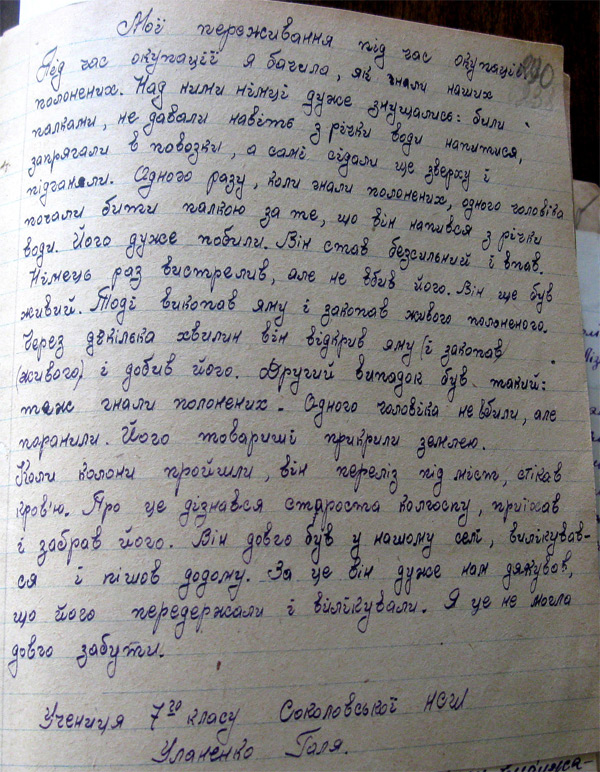 Мої переживання під час окупації
Під час окупації я бачила, як гнали наших
полонених. Над ними німці дуже знущались: били
палками, не давали навіть з річки води напитися,
запрягали в повозки, а самі сідали ще зверху і
підганяли. Одного разу, коли гнали полонених, одного чоловіка
почали бити палкою за те, що він напився з річки
води. Його дуже побили. Він став безсильний і впав.
Німець раз вистрелив, але не вбив його. Він ще був
живий. Тоді викопав яму і закопав живого полоненого.
Через декілька хвилин він відкрив яму (і закопав)
(живого) і добив його. Другий випадок був такий:
теж гнали полонених. Одного чоловіка не вбили, але
поранили. Його товариші прикрили землею.
Коли колони пройшли, він переліз під міст, стікав
кров'ю. Про це дізнався староста колгоспу, приїхав
і забрав його. Він довго був у нашому селі, вилікував-
ся і пішов додому. За це він дуже нам дякував,
що його передержали і вилікували. Я це не могла
довго забути.
Учениця 7го класу Соколовської НСШ
Уланенко Галя.